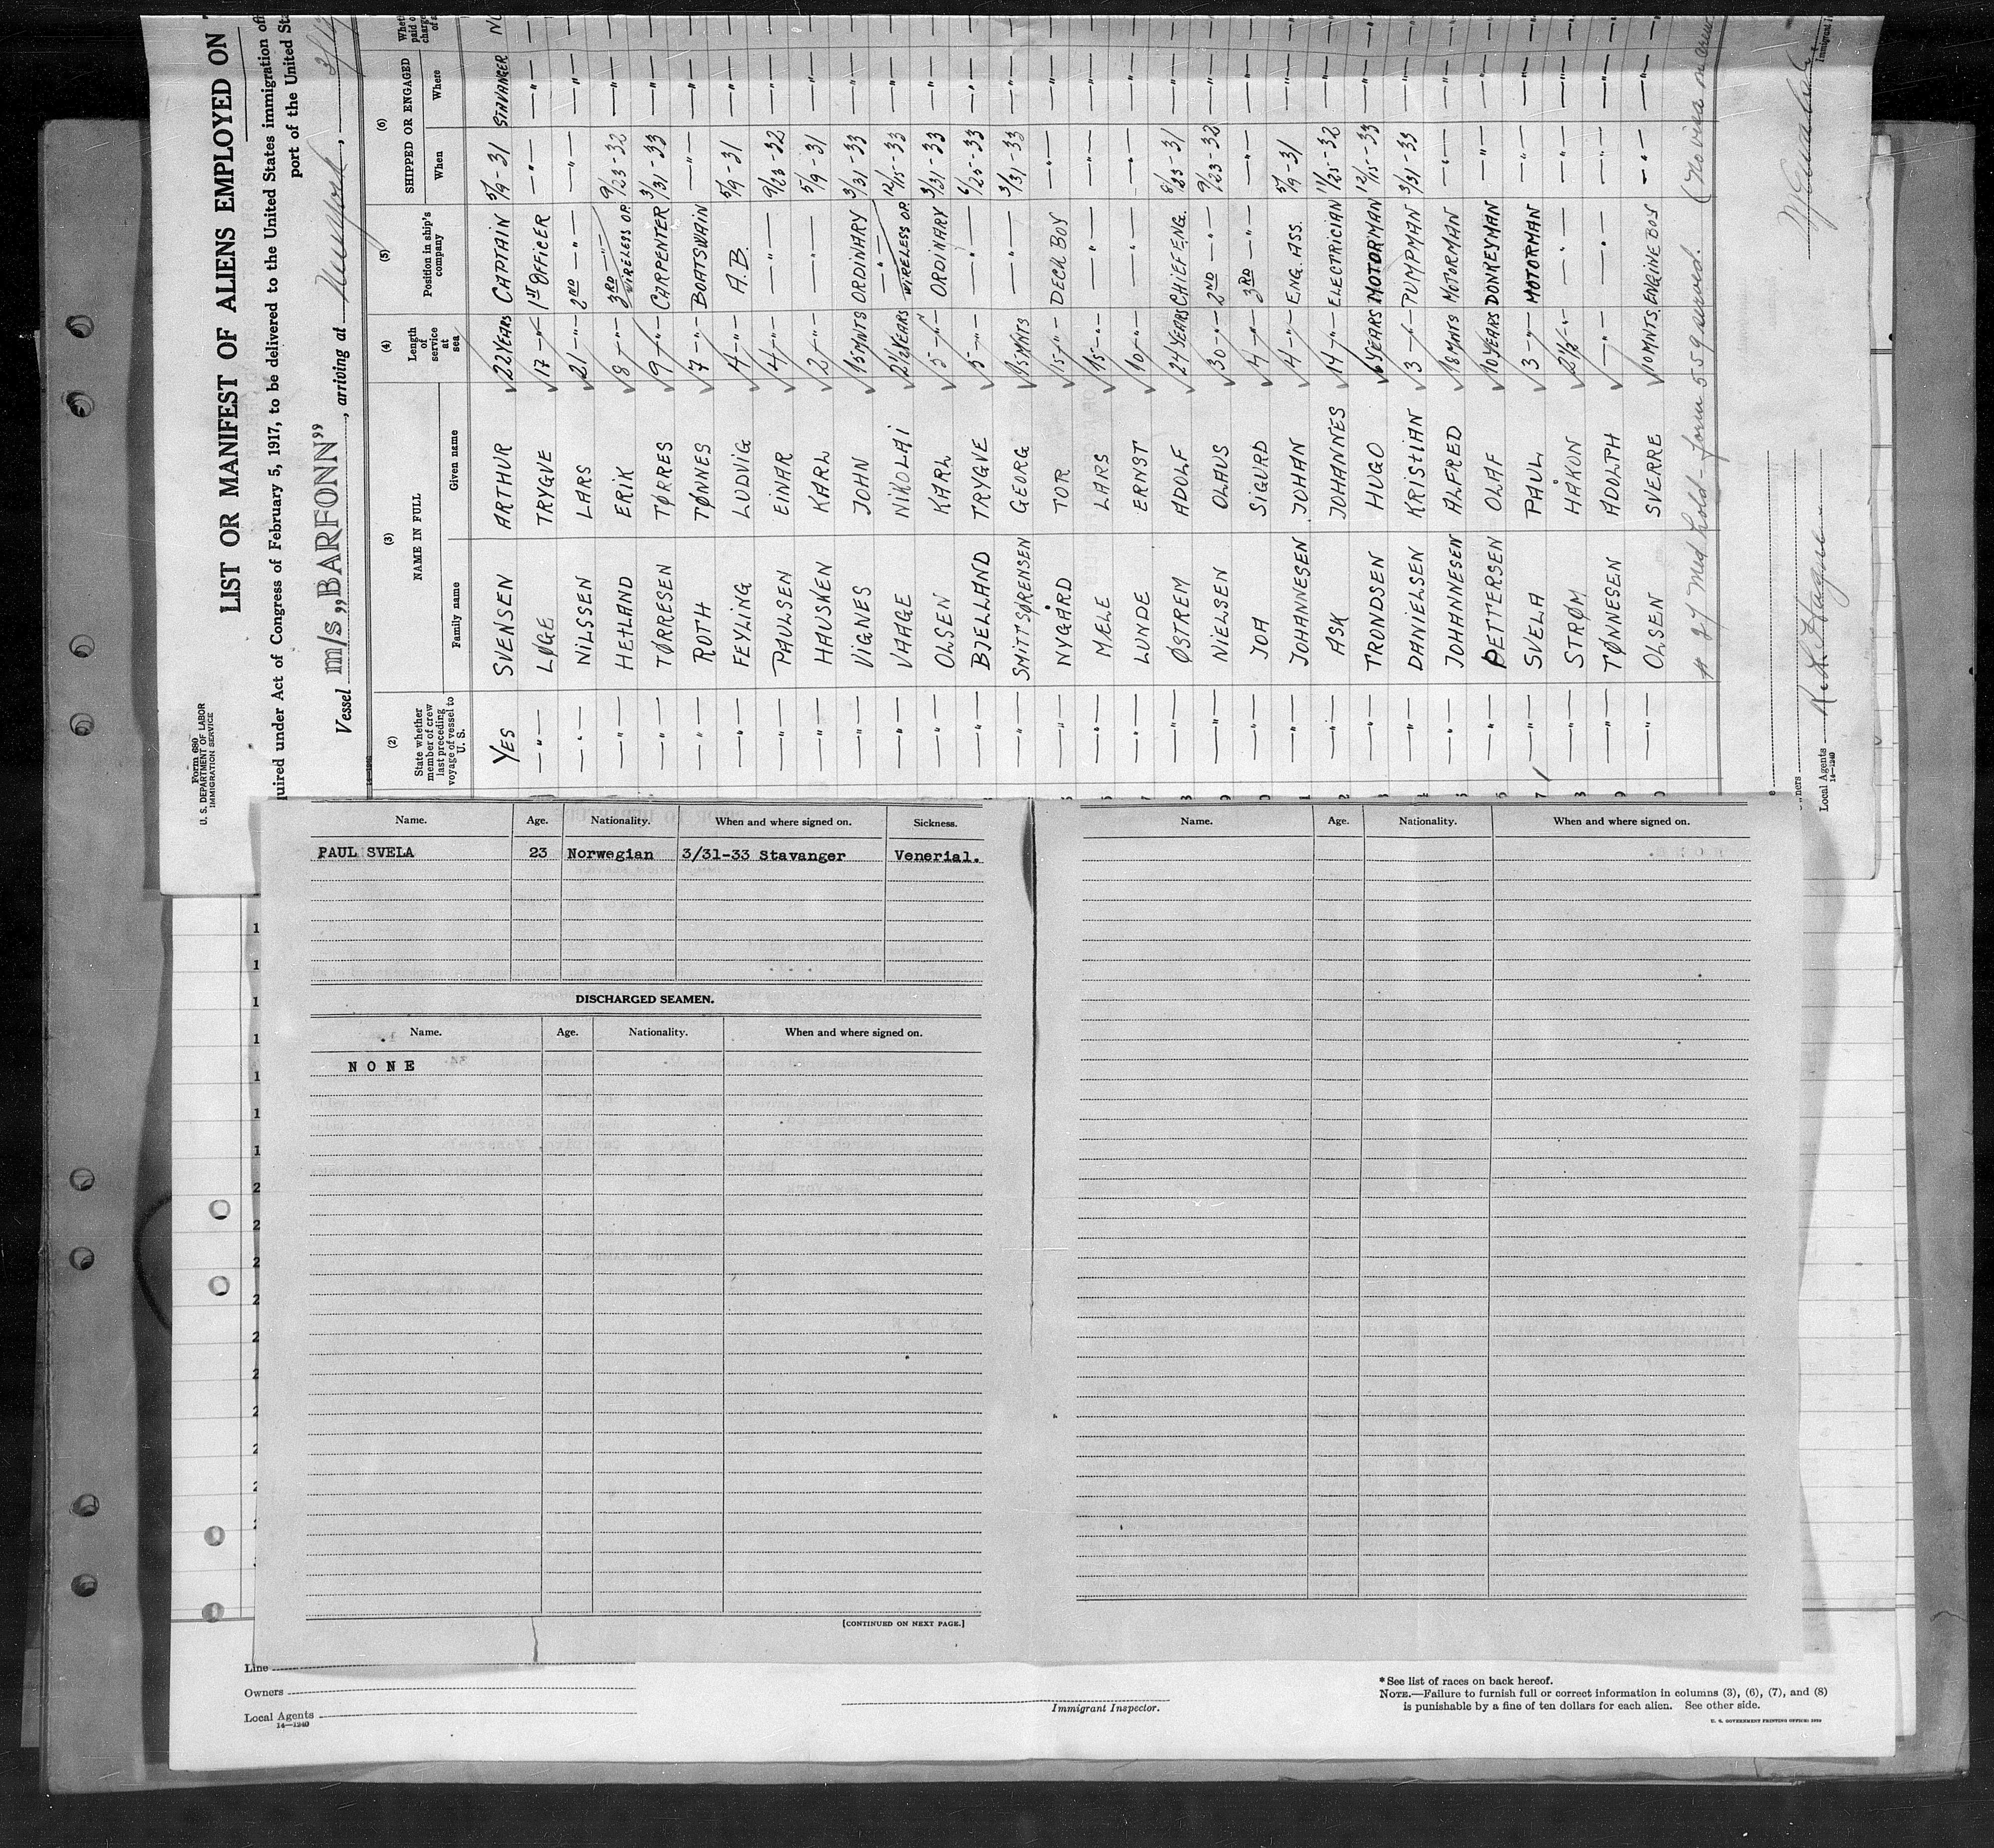 Form 680
U. S. DEPARTMENT OF LABOR
IMMIGRATION SERVICE
LIST OR MANIFEST OF ALIENS EMPLOYED ON
quired under Act of Congress of February 5, 1917, to be delivered to the United States immigration
port of the United
Vessel m/s „BARFONN", arriving at New York,
(2) (3) (4) (5) (6)
State whether member of crew last preceding voyage of vessel to U. S.
NAME IN FULL
Family name Given name
Length of service at sea
Position in ship's company
SHIPPED OR ENGAGED
When Where
YES SVENSEN ARTHUR 22 YEARS CAPTAIN 5/9-31 STAVANGER
—"— LØGE TRYGVE 17 —"— 1ST OFFICER —"— —"—
—"— NILSSEN LARS 21 —"— 2ND —"— —"— —"—
—"— HETLAND ERIK 8 —"— 3RD —"— WIRELESS OP. 9/23-32 —"—
—"— TØRRESEN TØRRES 9 —"— CARPENTER 3/31-33 —"—
—"— ROTH TØNNES 7 —"— BOATSWAIN —"— —"—
—"— FEYLING LUDVIG 4 —"— A.B. 5/9-31 —"—
—"— PAULSEN EINAR 4 —"— —"— 9/23-32 —"—
—"— HAUSKEN KARL 2 —"— —"— 5/9-31 —"—
—"— VIGNES JOHN 15 MNTS ORDINARY 3/31-33 —"—
—"— VAAGE NIKOLAI 2 1/2 YEARS —"— WIRELESS OP. 12/15-33 —"—
—"— OLSEN KARL 5 —"— ORDINARY 3/31-33 —"—
—"— BJELLAND TRYGVE 5 —"— —"— 6/25-33 —"—
—"— SMITT SØRENSEN GEORG 15 MNTS —"— 3/31-33 —"—
—"— NYGÅRD TOR 15 —"— DECK BOY —"— —"—
—"— MÆLE LARS 15 —"— —"— —"— —"—
—"— LUNDE ERNST 10 —"— —"— —"— —"—
—"— ØSTREM ADOLF 24 YEARS CHIEF ENG. 8/23-31 —"—
—"— NIELSEN OLAUS 30 —"— 2ND —"— 9/23-32 —"—
—"— JOA SIGURD 4 —"— 3RD —"— —"— —"—
—"— JOHANNESEN JOHAN 4 —"— ENG. ASS. 5/9-31 —"—
—"— ASK JOHANNES 14 —"— ELECTRICIAN 11/25-32 —"—
—"— TRONDSEN HUGO 6 YEARS MOTORMAN 12/15-33 —"—
—"— DANIELSEN KRISTIAN 3 —"— PUMPMAN 3/31-33 —"—
—"— JOHANNESEN ALFRED 18 MNTS MOTORMAN —"— —"—
—"— PETTERSEN OLAF 10 YEARS DONKEYMAN —"— —"—
—"— SVELA PAUL 3 —"— MOTORMAN —"— —"—
—"— STRØM HÅKON 2 1/2 —"— —"— —"— —"—
—"— TØNNESEN ADOLPH —"— —"— —"— —"—
—"— OLSEN SVERRE 10 MNTS. ENGINE BOY —"— —"—
# 27 Med hold - form 559 served. (No visa
Local Agents
14—1240
Name. Age. Nationality. When and where signed on. Sickness.
PAUL SVELA 23 Norwegian 3/31-33 Stavanger Venerial.
DISCHARGED SEAMEN.
Name. Age. Nationality. When and where signed on.
N O N E
[CONTINUED ON NEXT PAGE.]
Name. Age. Nationality. When and where signed on.
Line
Owners
Local Agents
14—1240
Immigrant Inspector.
* See list of races on back hereof.
NOTE.—Failure to furnish full or correct information in columns (3), (6), (7), and (8)
is punishable by a fine of ten dollars for each alien. See other side.
U. S. GOVERNMENT PRINTING OFFICE: